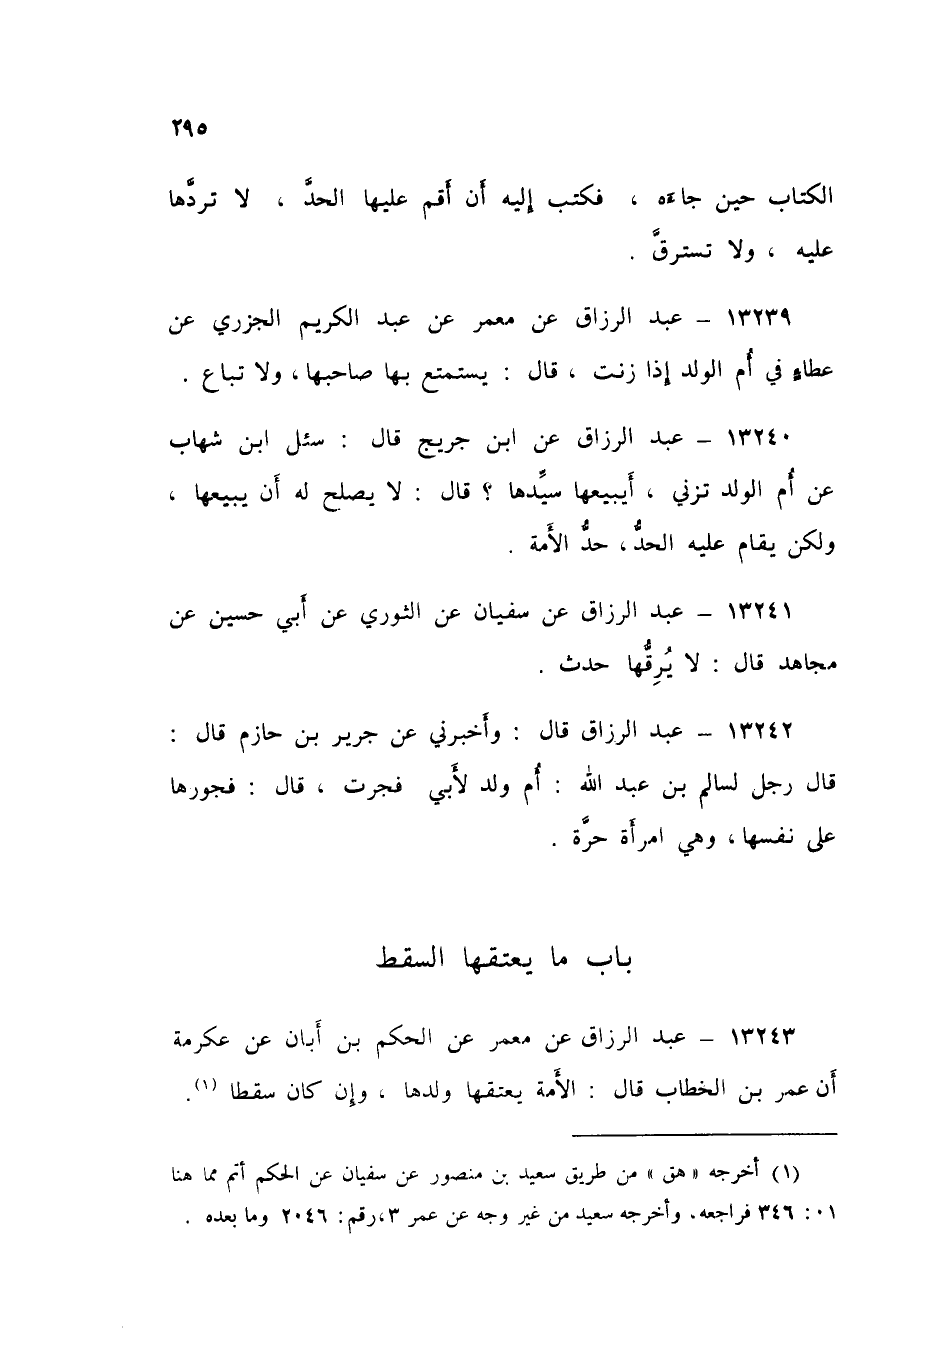 ٢٩٥
الكتاب حين جاءَه ، فكتب إليه أَن أَقم عليها الحدَّ ، لا تردَّها
عليه ، ولا تسترقَّ .
١٣٢٣٩ – عبد الرزاق عن معمر عن عبد الكريم الجزري عن
عطاءٍ في أُم الولد إذا زنت ، قال : يستمتع بها صاحبها، ولا تباع .
١٣٢٤٠ – عبد الرزاق عن ابن جريج قال : سئل ابن شهاب
عن أُم الولد تزني ، أَيبيعها سيِّدها ؟ قال : لا يصلح له أَن يبيعها ،
ولكن يقام عليه الحدُّ، حدُّ الأَمة .
١٣٢٤١ – عبد الرزاق عن سفيان عن الثوري عن أَبي حسين عن
مجاهد قال : لا يُرِقُّها حدث .
١٣٢٤٢ – عبد الرزاق قال : وأَخبرني عن جرير بن حازم قال :
قال رجل لسالم بن عبد الله : أُم ولد لأَبي فجرت ، قال : فجورها
على نفسها، وهي امرأَة حرَّة .
باب ما يعتقها السقط
١٣٢٤٣ – عبد الرزاق عن معمر عن الحكم بن أَبان عن عكرمة
أَن عمر بن الخطاب قال : الأَمة يعتقها ولدها ، وإِن كان سقطا (١).
(١) أخرجه «هق» من طريق سعيد بن منصور عن سفيان عن الحكم أتم مما هنا
٠١: ٣٤٦ فراجعه. وأخرجه سعيد من غير وجه عن عمر ٣،رقم: ٢٠٤٦ وما بعده .